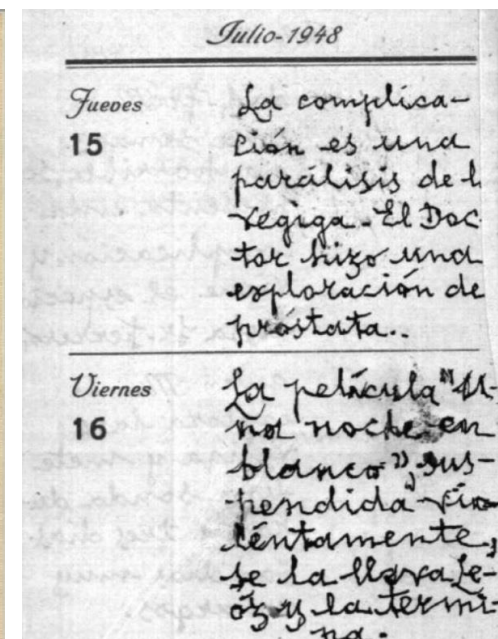 Julio-1948
Jueves
15
La complica-
ción es una
parálisis de l
vegiga. El Doc
tor hizo una
exploración de
próstata..
Viernes
16
La película "U-
na noche en
blanco", sus-
pendida vio-
lentamente,
se la lleva Le-
óz y la termi-
na.